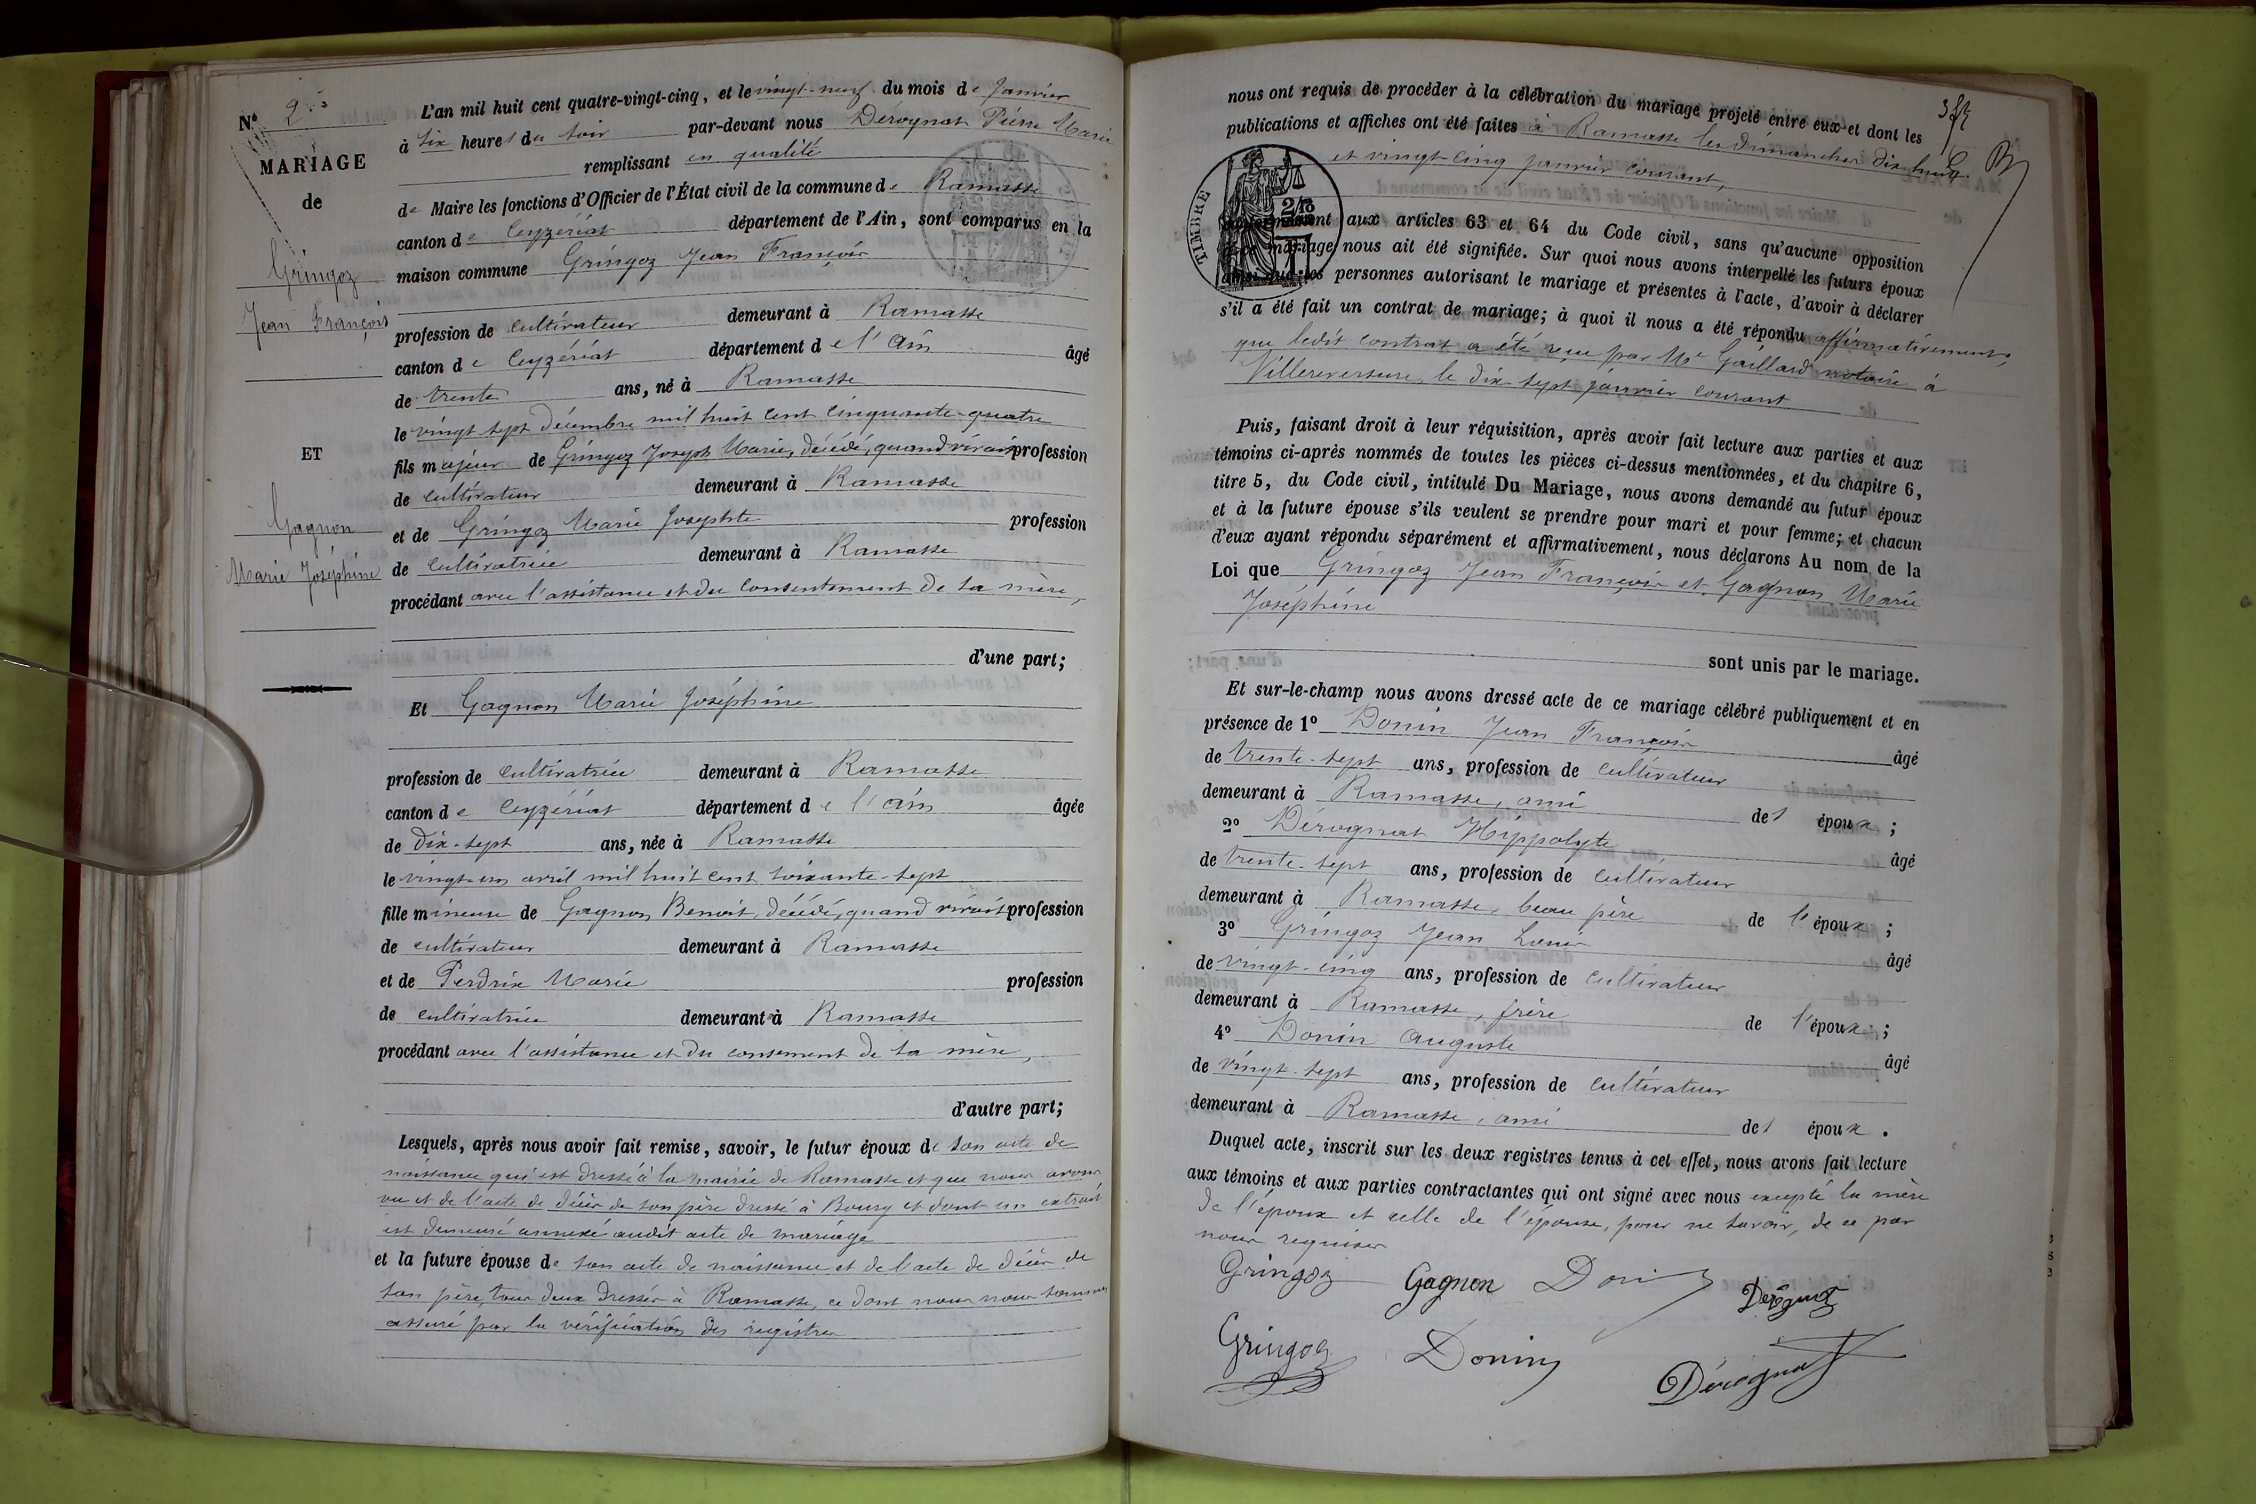 N° 2
MARIAGE
de
Gringoz
Jean François
ET
Gagnon
Marie Joséphine
L'an mil huit cent quatre-vingt-cinq, et le vingt-neuf du mois de Janvier
à six heures du soir par-devant nous Dérognat Pierre Marie
remplissant en qualité
de Maire les fonctions d'Officier de l'État civil de la commune de Ramasse
canton de Ceyzériat département de l'Ain, sont comparus en la
maison commune Gringoz Jean François
profession de cultivateur demeurant à Ramasse
canton de Ceyzériat département de l'Ain âgé
de trente ans, né à Ramasse
le vingt sept décembre mil huit cent cinquante-quatre
fils majeur de Gringoz Joseph Marie, décédé, quand vivait profession
de cultivateur demeurant à Ramasse
et de Gringoz Marie Josephte profession
de cultivatrice demeurant à Ramasse
procédant avec l'assistance et du consentement de sa mère,
d'une part;
Et Gagnon Marie Joséphine
profession de cultivatrice demeurant à Ramasse
canton de Ceyzériat département de l'Ain âgée
de dix-sept ans, née à Ramasse
le vingt-un avril mil huit cent soixante-sept
fille mineure de Gagnon Benoit, décédé, quand vivait profession
de cultivateur demeurant à Ramasse
et de Perdrix Marie profession
de cultivatrice demeurant à Ramasse
procédant avec l'assistance et du consement de sa mère,
d'autre part;
Lesquels, après nous avoir fait remise, savoir, le futur époux de son acte de
naissance qui est dressé à la mairie de Ramasse et que nous avons
vu et de l'acte de décès de son père dressé à Bourg et dont un extrait
est demeuré annexé audit acte de mariage
et la future épouse de son acte de naissance et de l'acte de décès de
son père, tous deux dressés à Ramasse, ce dont nous nous sommes
assuré par la vérification des registres
nous ont requis de procéder à la célébration du mariage projeté entre eux et dont les
publications et affiches ont été faites à Ramasse les dimanches dix-huit
et vingt-cinq janvier courant,
TIMBRE
aux articles 63 et 64 du Code civil, sans qu'aucune opposition
mariage nous ait été signifiée. Sur quoi nous avons interpellé les futurs époux
personnes autorisant le mariage et présentes à l'acte, d'avoir à déclarer
s'il a été fait un contrat de mariage; à quoi il nous a été répondu affirmativement,
que ledit contrat a été reçu par Me Gaillard notaire à
Villereversure, le dix-sept janvier courant
Puis, faisant droit à leur réquisition, après avoir fait lecture aux parties et aux
témoins ci-après nommés de toutes les pièces ci-dessus mentionnées, et du chapitre 6,
titre 5, du Code civil, intitulé Du Mariage, nous avons demandé au futur époux
et à la future épouse s'ils veulent se prendre pour mari et pour femme; et chacun
d'eux ayant répondu séparément et affirmativement, nous déclarons Au nom de la
Loi que Gringoz Jean François et Gagnon Marie
Joséphine
sont unis par le mariage.
Et sur-le-champ nous avons dressé acte de ce mariage célébré publiquement et en
présence de 1° Donin Jean François âgé
de trente-sept ans, profession de cultivateur
demeurant à Ramasse, ami des époux ;
2° Dérognat Hippolyte âgé
de trente-sept ans, profession de cultivateur
demeurant à Ramasse, beau père de l'époux ;
3° Gringoz Jean Louis âgé
de vingt-cinq ans, profession de cultivateur
demeurant à Ramasse, frère de l'époux ;
4° Donin Auguste âgé
de vingt-sept ans, profession de cultivateur
demeurant à Ramasse, ami des époux .
Duquel acte, inscrit sur les deux registres tenus à cet effet, nous avons fait lecture
aux témoins et aux parties contractantes qui ont signé avec nous excepté la mère
de l'époux et celle de l'épouse, pour ne savoir, de ce par
nous requises
Gringoz Gagnon Donin Dérognat
Gringoz Donin Dérognat